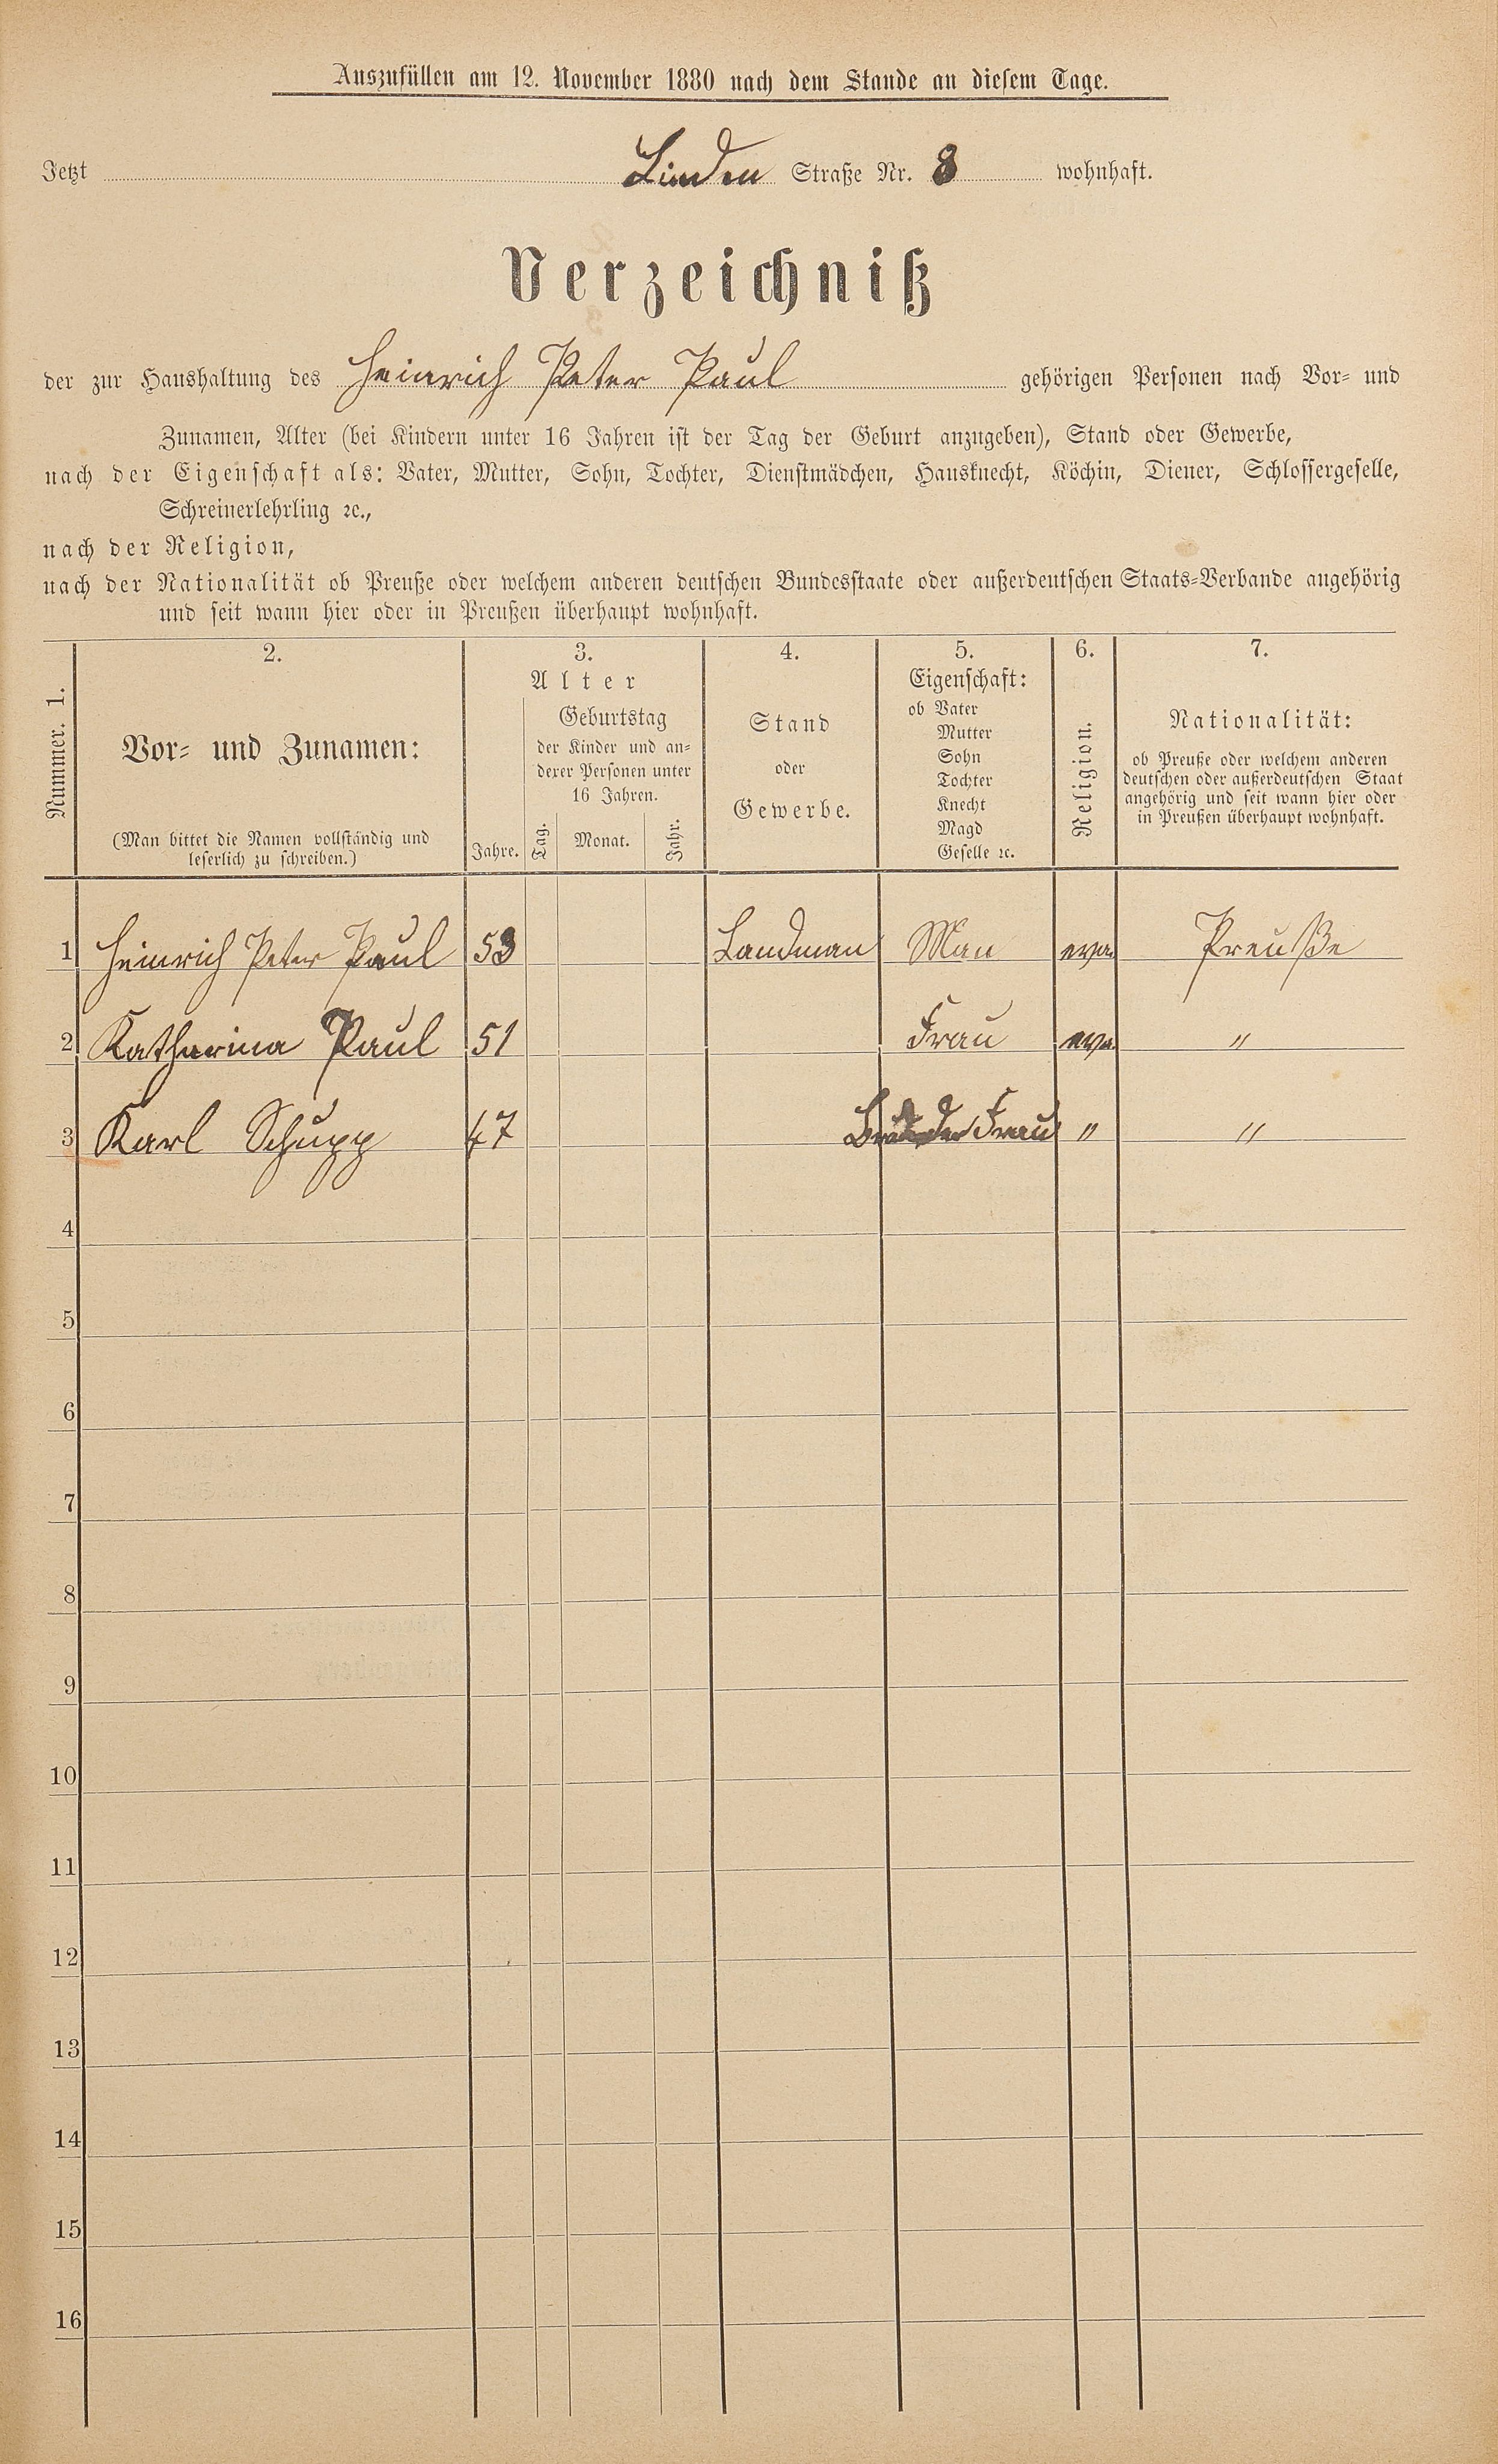 Auszufüllen am 12. November 1880 nach dem Stande an diesem Tage.
Jetzt Linden Straße Nr. 8 wohnhaft.
Verzeichniß
der zur Haushaltung des Heinrich Peter Paul gehörigen Personen nach Vor- und
Zunamen, Alter (bei Kindern unter 16 Jahren ist der Tag der Geburt anzugeben), Stand oder Gewerbe,
nach der Eigenschaft als: Vater, Mutter, Sohn, Tochter, Dienstmädchen, Hausknecht, Köchin, Diener, Schlossergeselle,
Schreinerlehrling ꝛc.,
nach der Religion,
nach der Nationalität ob Preuße oder welchem anderen deutschen Bundesstaate oder außerdeutschen Staats-Verbande angehörig
und seit wann hier oder in Preußen überhaupt wohnhaft.
Nummer. 1.
2.
Vor- und Zunamen:
(Man bittet die Namen vollständig und
leserlich zu schreiben.)
3.
Alter
Geburtstag
der Kinder und an-
derer Personen unter
16 Jahren.
Jahre. Tag. Monat. Jahr.
4.
Stand
oder
Gewerbe.
5.
Eigenschaft:
ob Vater
Mutter
Sohn
Tochter
Knecht
Magd
Geselle ꝛc.
6.
Religion.
7.
Nationalität:
ob Preuße oder welchem anderen
deutschen oder außerdeutschen Staat
angehörig und seit wann hier oder
in Preußen überhaupt wohnhaft.
1 Heinrich Peter Paul 53 Landman Man eva. Preuße
2 Katharina Paul 51 Frau eva. "
3 Karl Schupp 47 der Frau " "
4
5
6
7
8
9
10
11
12
13
14
15
16